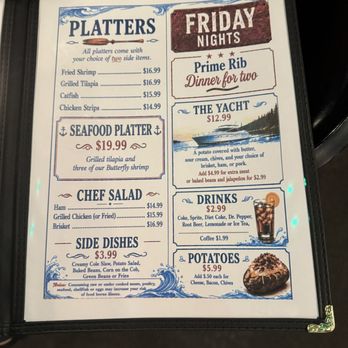 PLATTERS
All platters come with
your choice of two side items.
Fried Shrimp $16.99
Grilled Tilapia $16.99
Catfish $15.99
Chicken Strips $14.99
SEAFOOD PLATTER
$19.99
Grilled tilapia and
three of our Butterfly shrimp
CHEF SALAD
Ham $14.99
Grilled Chicken (or Fried) $15.99
Brisket $16.99
SIDE DISHES
$3.99
Creamy Cole Slaw, Potato Salad,
Baked Beans, Corn on the Cob,
Green Beans or Fries
Notice: Consuming raw or under cooked meats, poultry,
seafood, shellfish or eggs may increase your risk
of food borne illness.
FRIDAY
NIGHTS
Prime Rib
Dinner for two
THE YACHT
$12.99
A potato covered with butter,
sour cream, chives, and your choice of
brisket, ham, or pork.
Add $4.99 for extra meat
or baked beans and jalapeños for $2.99
DRINKS
$2.99
Coke, Sprite, Diet Coke, Dr. Pepper,
Root Beer, Lemonade or Ice Tea,
Coffee $1.99
POTATOES
$5.99
Add $.50 each for
Cheese, Bacon, Chives